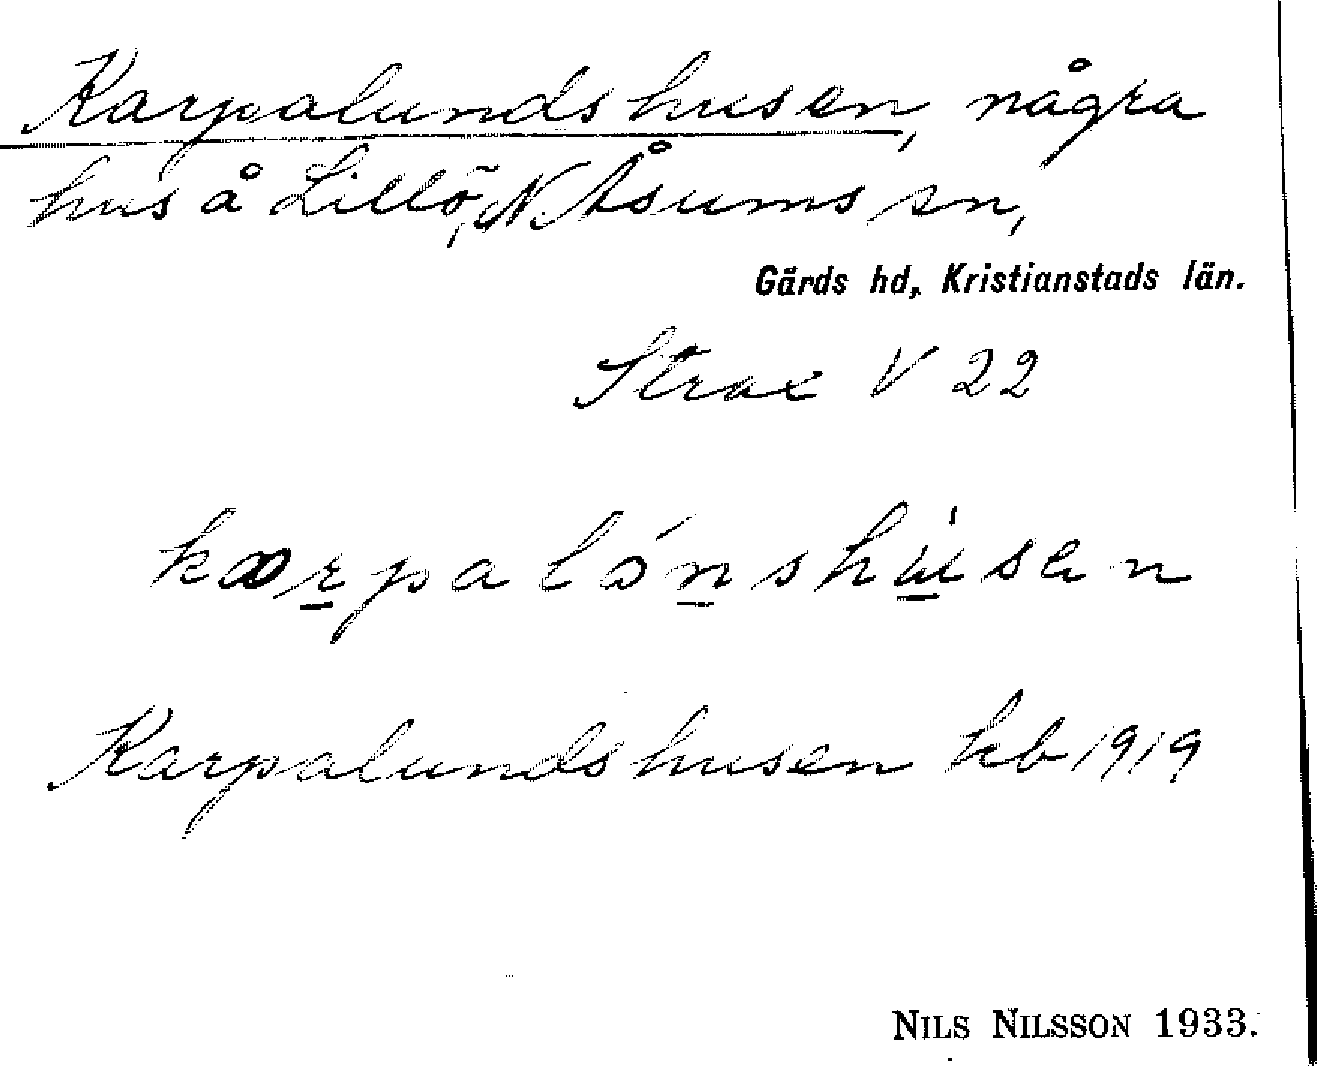 Karpalundshusen, några
hus å Lillö, N. Åsums sn,
Gärds hd, Kristianstads län.
Strax V 22
Karpalundshusen kb 1919
NILS NILSSON 1933.